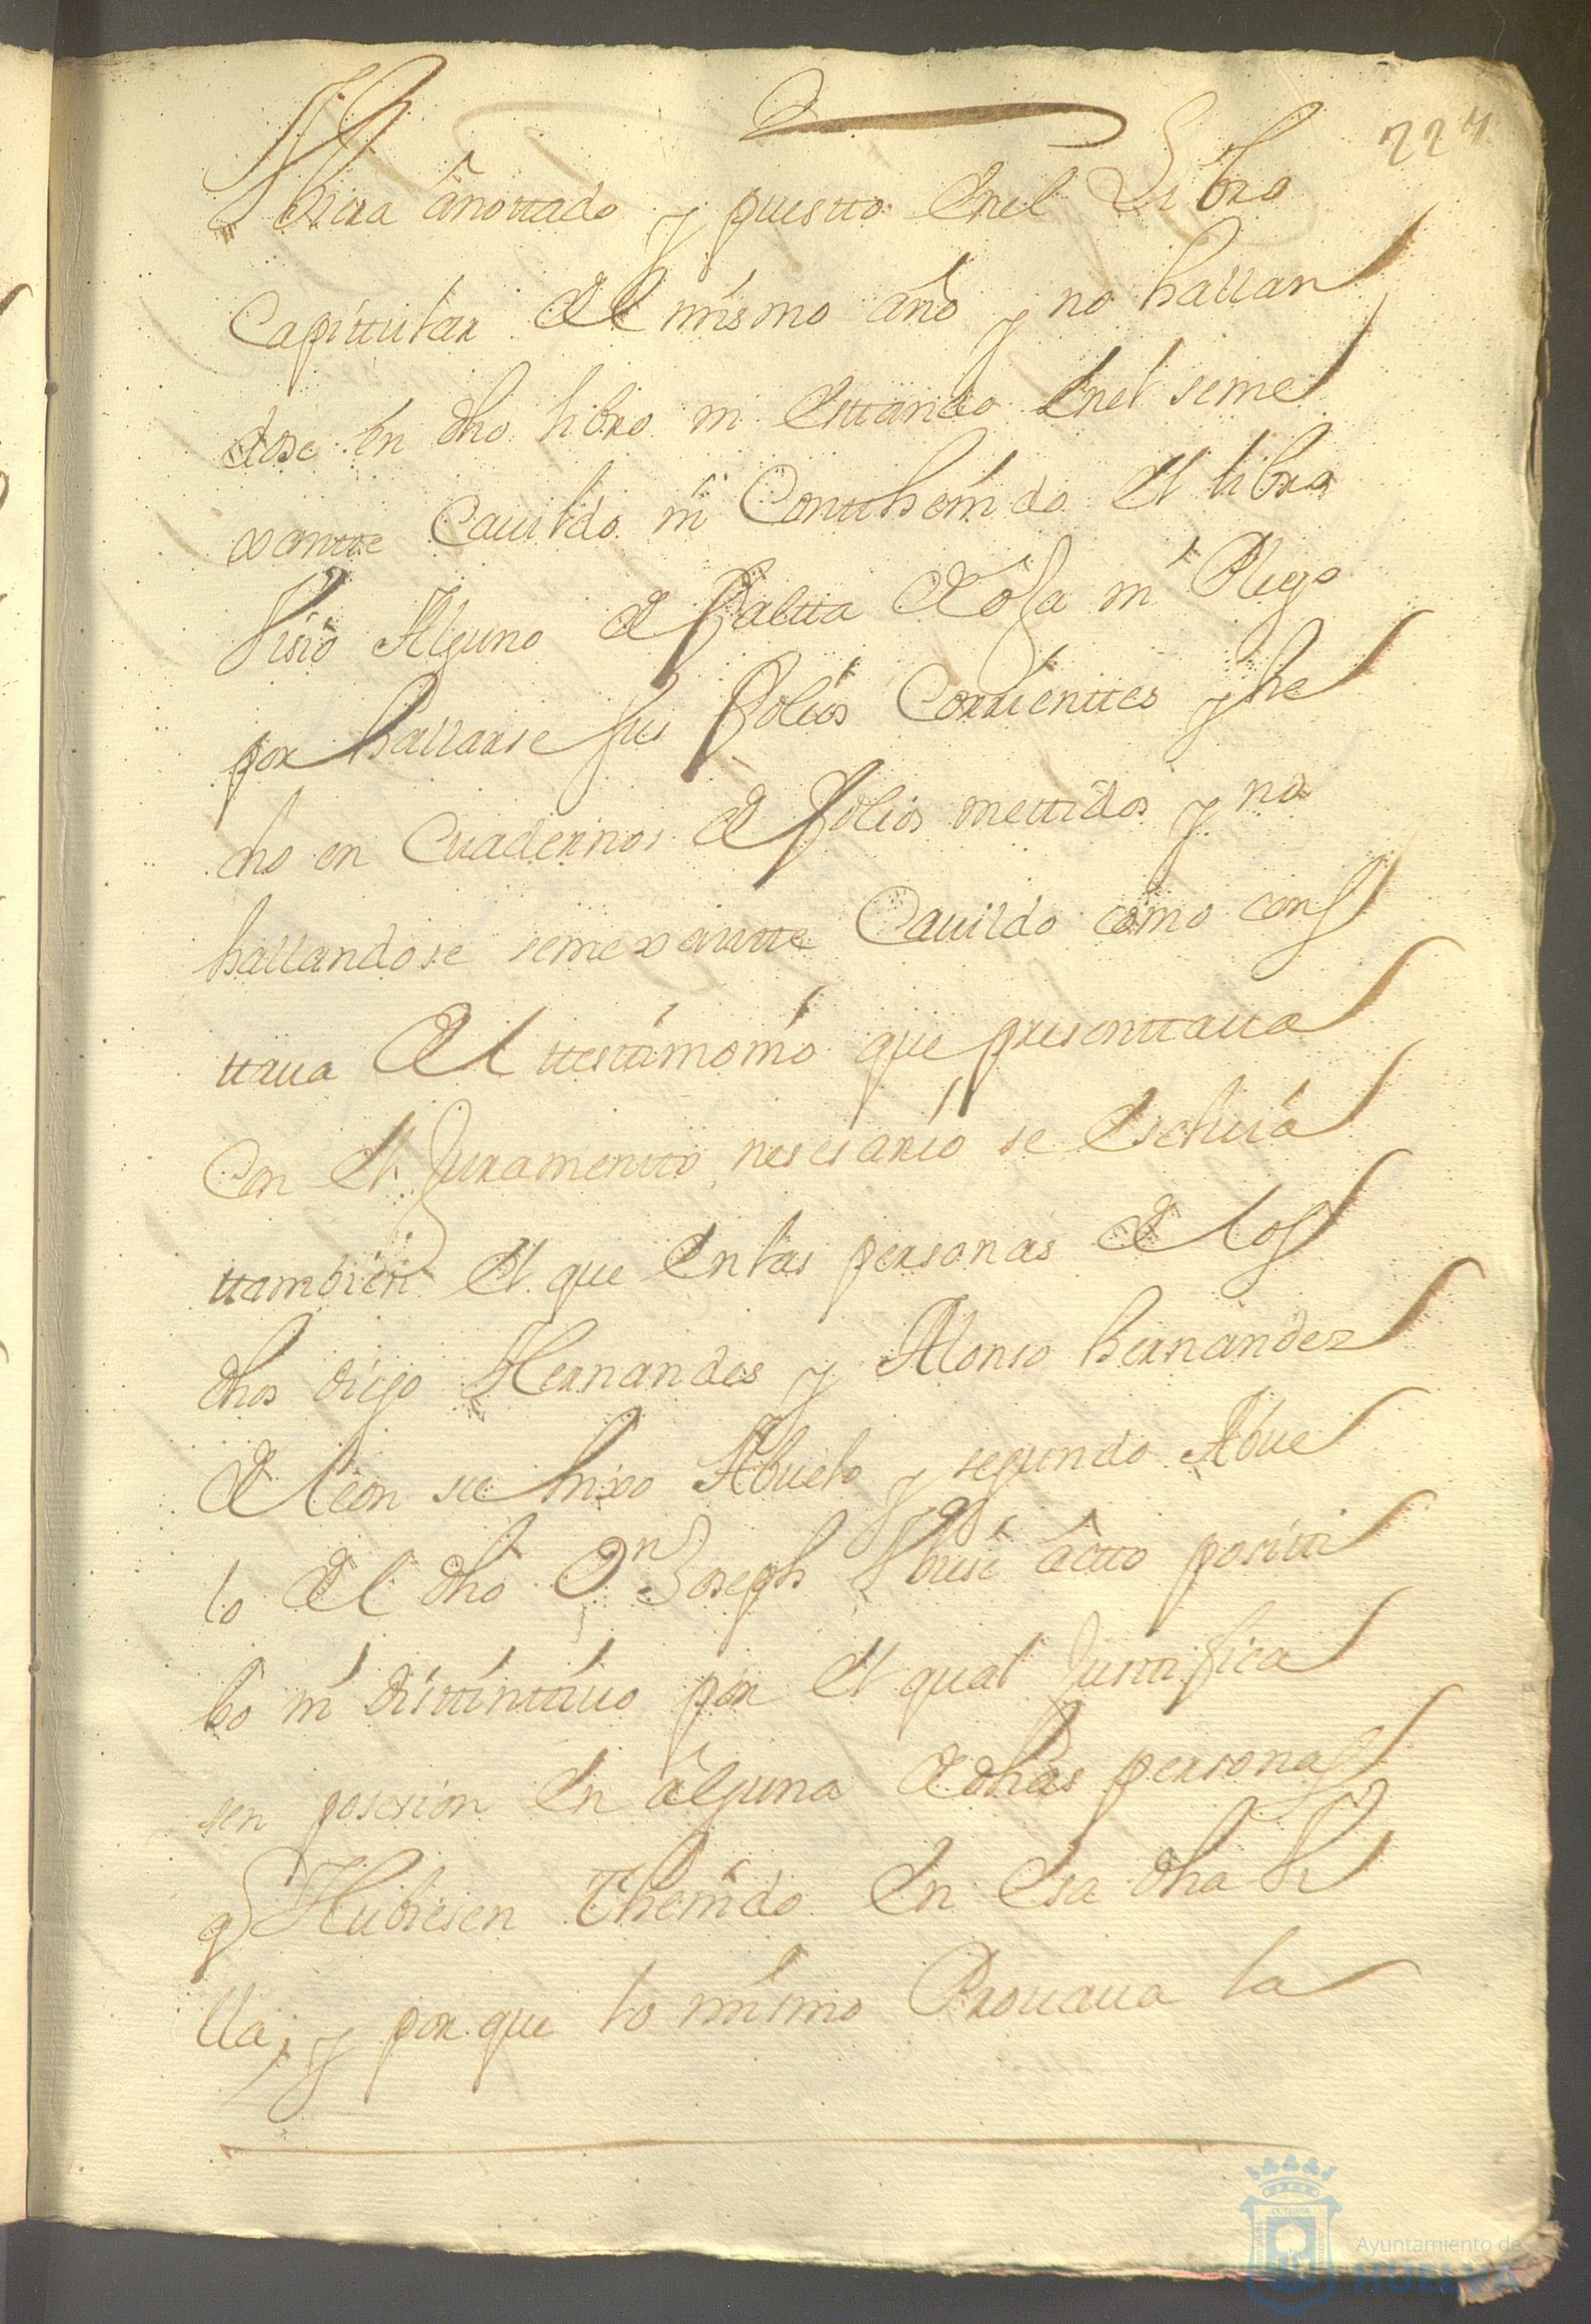 224
Vbiera anottado y puestto Enel Libro
Capittular del mismo año y no hallan
dose en dho libro ni Esttando Enel seme
xantte Cauildo ni Conthenido el libro
Visio Alguno de faltta de oja ni Pliego
por hallarse sus folios Corrienttes y he
cho en Cuadernos de folios mettidos y no
hallandose semexantte Cauildo como cons
ttaua del ttestimonio que presenttaua
Con el Juramentto nesesario se Escluia
ttambien el que En las personas de los
dhos diego Hernandes y Alonso hernandez
de leon su hixo Abuelo y segundo Abue
lo del dho Dn Joseph Vbiese actto positti
bo ni disttinttiuo por el qual Justtifica
sen posesion En alguna de dhas personas
q Hubiesen Thenido En Esa dha Vi
lla; y porque lo mismo Prouaua la
Ayuntamiento de
HUELVA